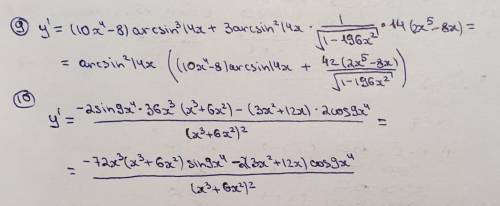 ⑨ y' = (10x⁴-8) arcsin³14x + 3arcsin²14x · 1/√(1-196x²) · 14(2x⁵-8x) =
= arcsin²14x ((10x⁴-8)arcsin14x + 42(2x⁵-8x)/√(1-196x²))
⑩ y' = (-2sin9x⁴·36x³(x³+6x²) - (3x²+12x)·2cos9x⁴)/(x³+6x²)² =
= (-72x³(x³+6x²)sin9x⁴ - 2(3x²+12x)cos9x⁴)/(x³+6x²)²